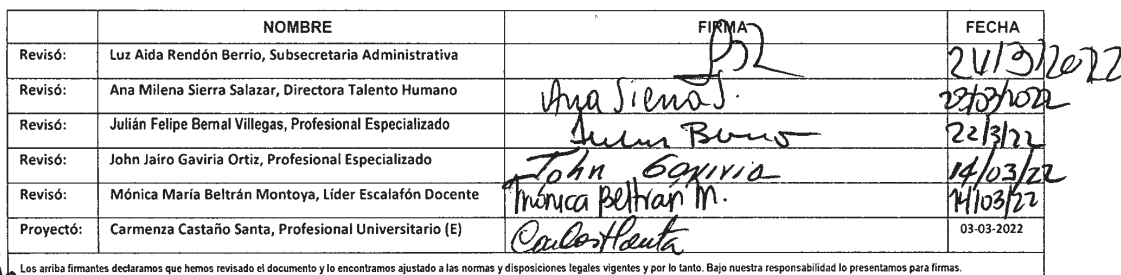 NOMBRE FIRMA FECHA
Revisó: Luz Aida Rendón Berrio, Subsecretaria Administrativa 24/3/2022
Revisó: Ana Milena Sierra Salazar, Directora Talento Humano Ana Sierra S. 23/03/2022
Revisó: Julián Felipe Bernal Villegas, Profesional Especializado 22/3/22
Revisó: John Jairo Gaviria Ortiz, Profesional Especializado John Gaviria 14/03/22
Revisó: Mónica María Beltrán Montoya, Líder Escalafón Docente Mónica Beltrán M. 14/03/22
Proyectó: Carmenza Castaño Santa, Profesional Universitario (E) 03-03-2022
Los arriba firmantes declaramos que hemos revisado el documento y lo encontramos ajustado a las normas y disposiciones legales vigentes y por lo tanto. Bajo nuestra responsabilidad lo presentamos para firmas.